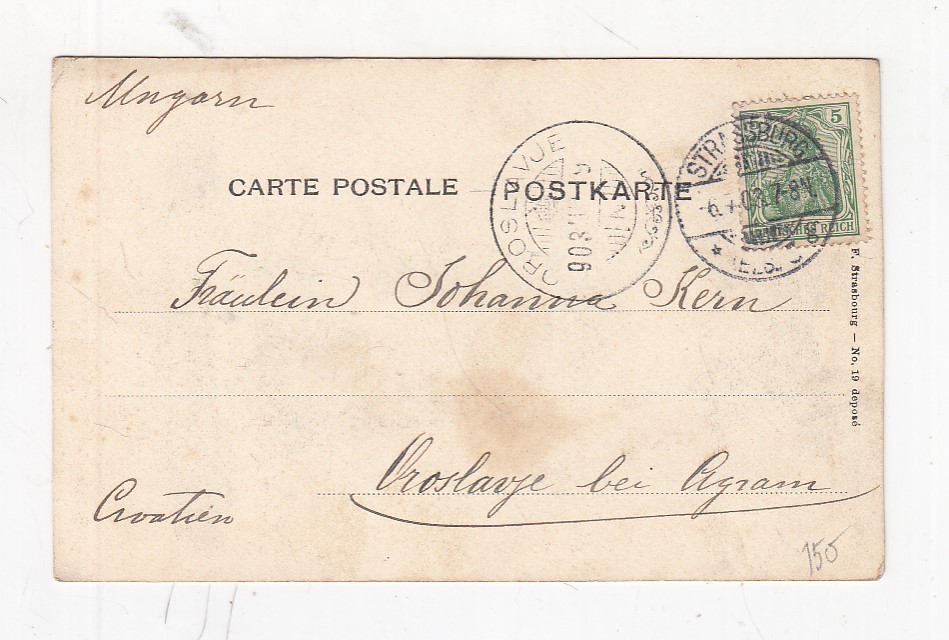 Ungarn
CARTE POSTALE — POSTKARTE
OROSLAVJE
903
STRASSBURG
7-8N.
(ELS.)
5
DEUTSCHES REICH
Fräulein Johanna Kern
Oroslavje bei Agram
Croatien
F. Strasbourg — No. 19 deposé
150